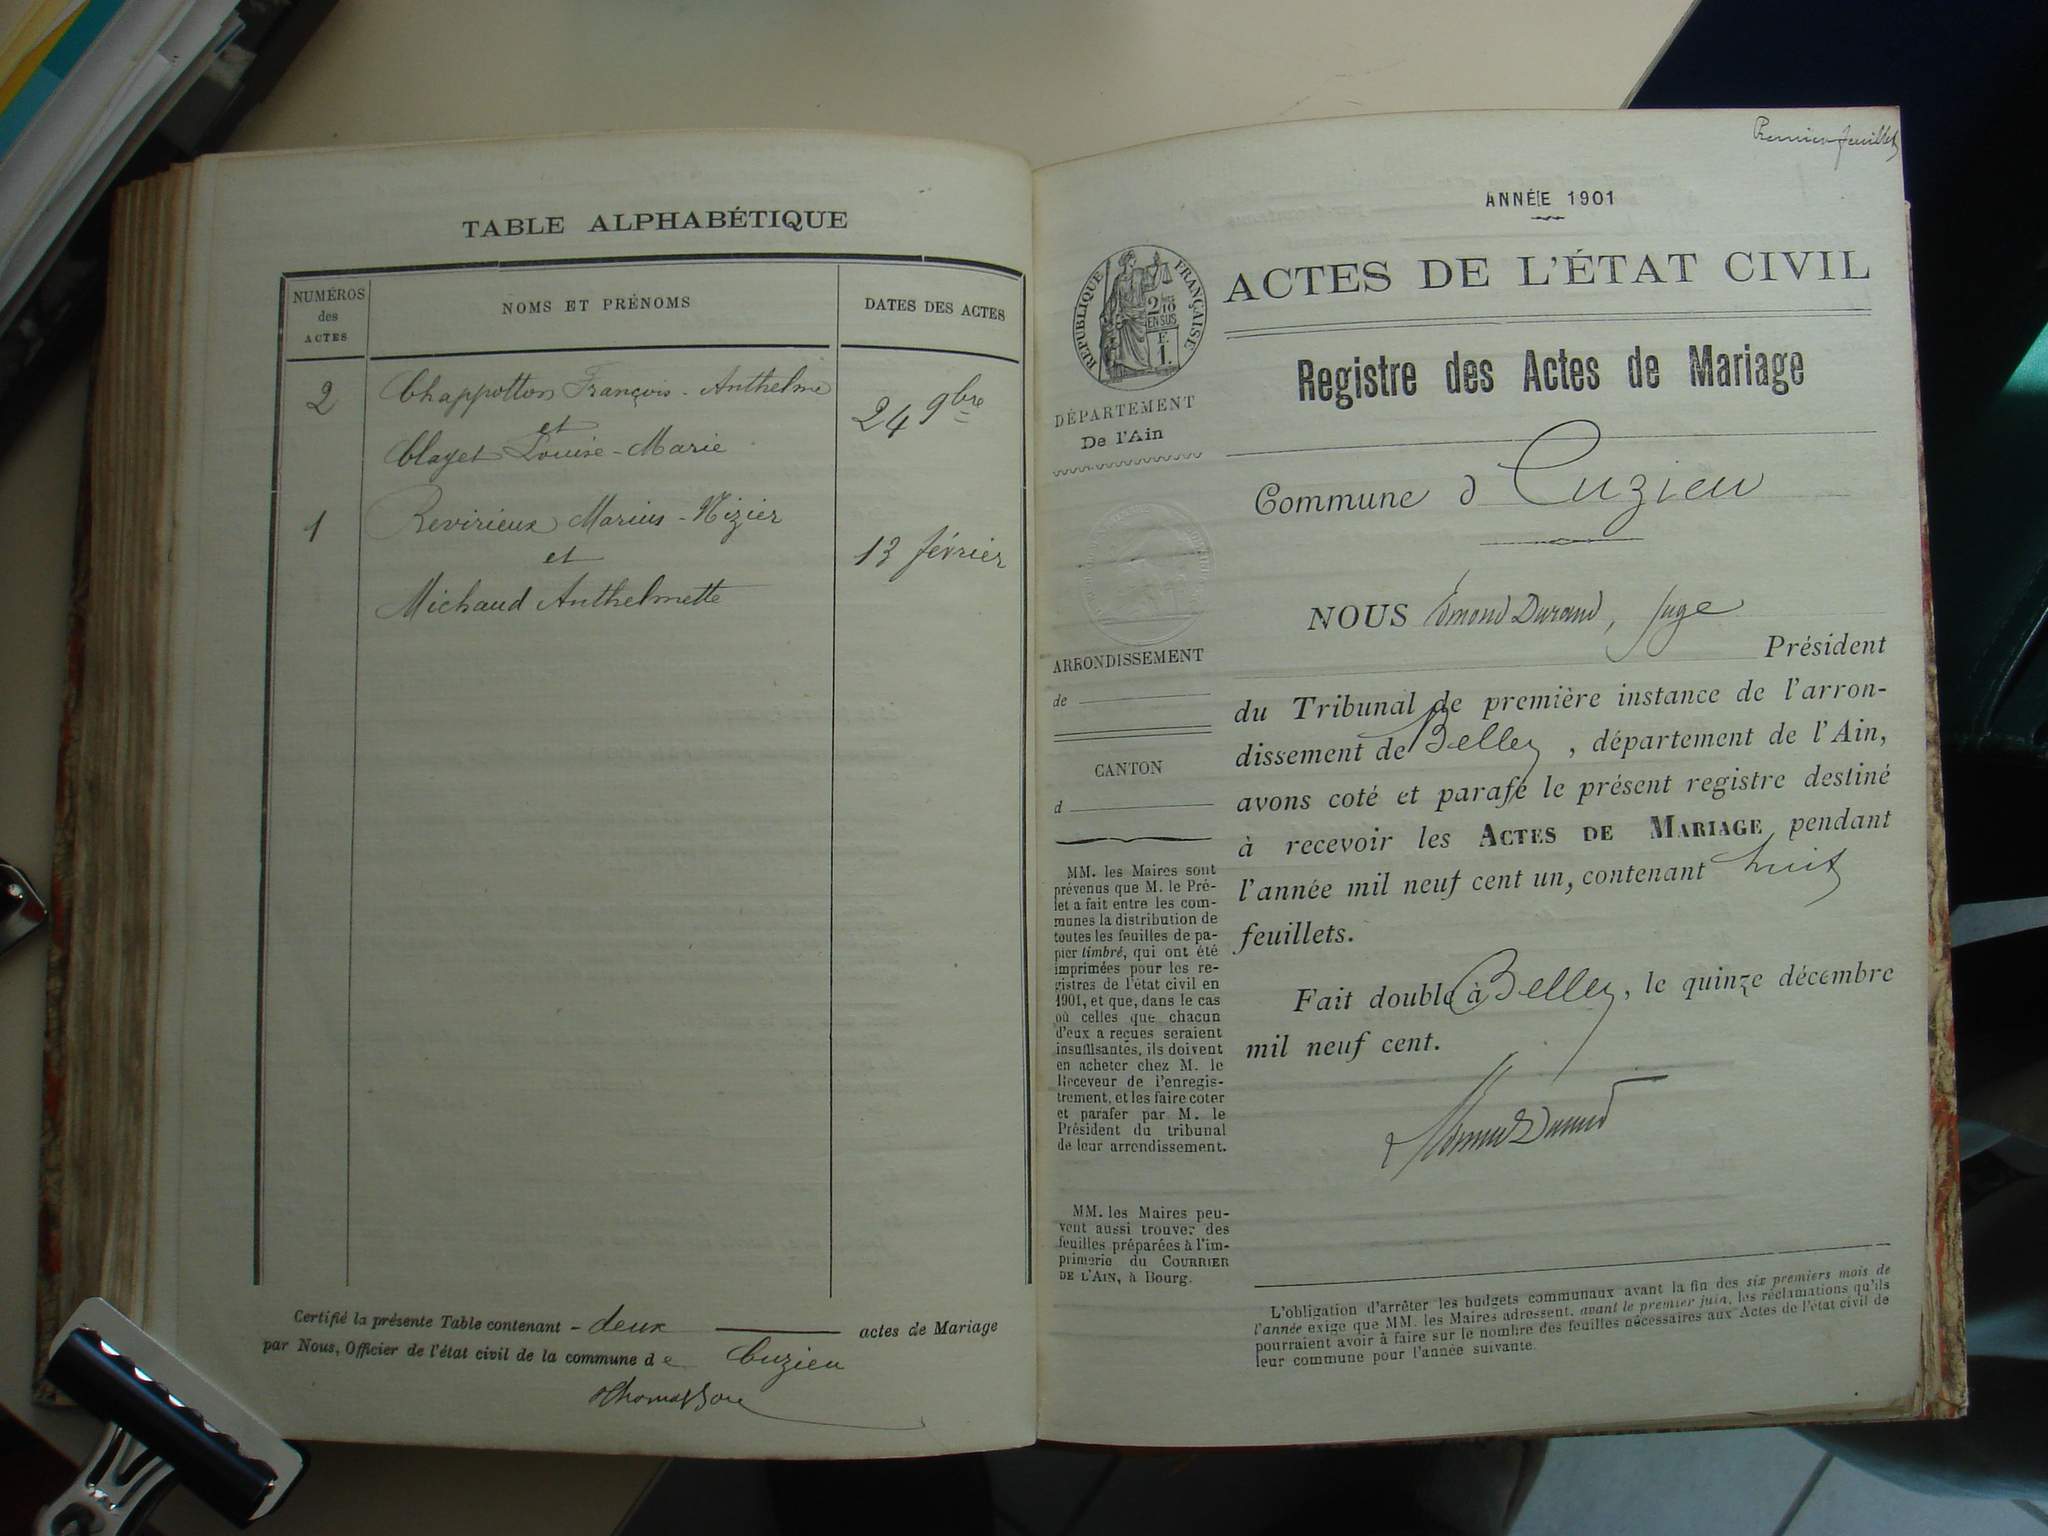 TABLE ALPHABÉTIQUE
NUMÉROS
des
ACTES
NOMS ET PRÉNOMS
DATES DES ACTES
2
Chappotton François-Anthelme
et
Clayet Louise-Marie
24 9bre
1
Revirieux Marius-Nizier
et
Michaud Anthelmette
13 février
Certifié la présente Table contenant - deux actes de Mariage
par Nous, Officier de l'état civil de la commune de Cuzieu
Premier feuillet
ANNÉE 1901
ACTES DE L'ÉTAT CIVIL
RÉPUBLIQUE FRANÇAISE
2/10
EN SUS
F.
1.
Registre des Actes de Mariage
DÉPARTEMENT
De l'Ain
Commune d Cuzieu
ARRONDISSEMENT
de
CANTON
d
MM. les Maires sont
prévenus que M. le Pré-
fet a fait entre les com-
munes la distribution de
toutes les feuilles de pa-
pier timbré, qui ont été
imprimées pour les re-
gistres de l'état civil en
1901, et que, dans le cas
où celles que chacun
d'eux a reçues seraient
insuffisantes, ils doivent
en acheter chez M. le
Receveur de l'enregis-
trement, et les faire coter
et parafer par M. le
Président du tribunal
de leur arrondissement.
MM. les Maires peu-
vent aussi trouver des
feuilles préparées à l'im-
primerie du COURRIER
DE L'AIN, à Bourg.
NOUS Edmond Durand, Juge
Président
du Tribunal de première instance de l'arron-
dissement de Belley, département de l'Ain,
avons coté et parafé le présent registre destiné
à recevoir les ACTES DE MARIAGE pendant
l'année mil neuf cent un, contenant huit
feuillets.
Fait double à Belley, le quinze décembre
mil neuf cent.
L'obligation d'arrêter les budgets communaux avant la fin des six premiers mois de
l'année exige que MM. les Maires adressent, avant le premier juin, les réclamations qu'ils
pourraient avoir à faire sur le nombre des feuilles nécessaires aux Actes de l'état civil de
leur commune pour l'année suivante.